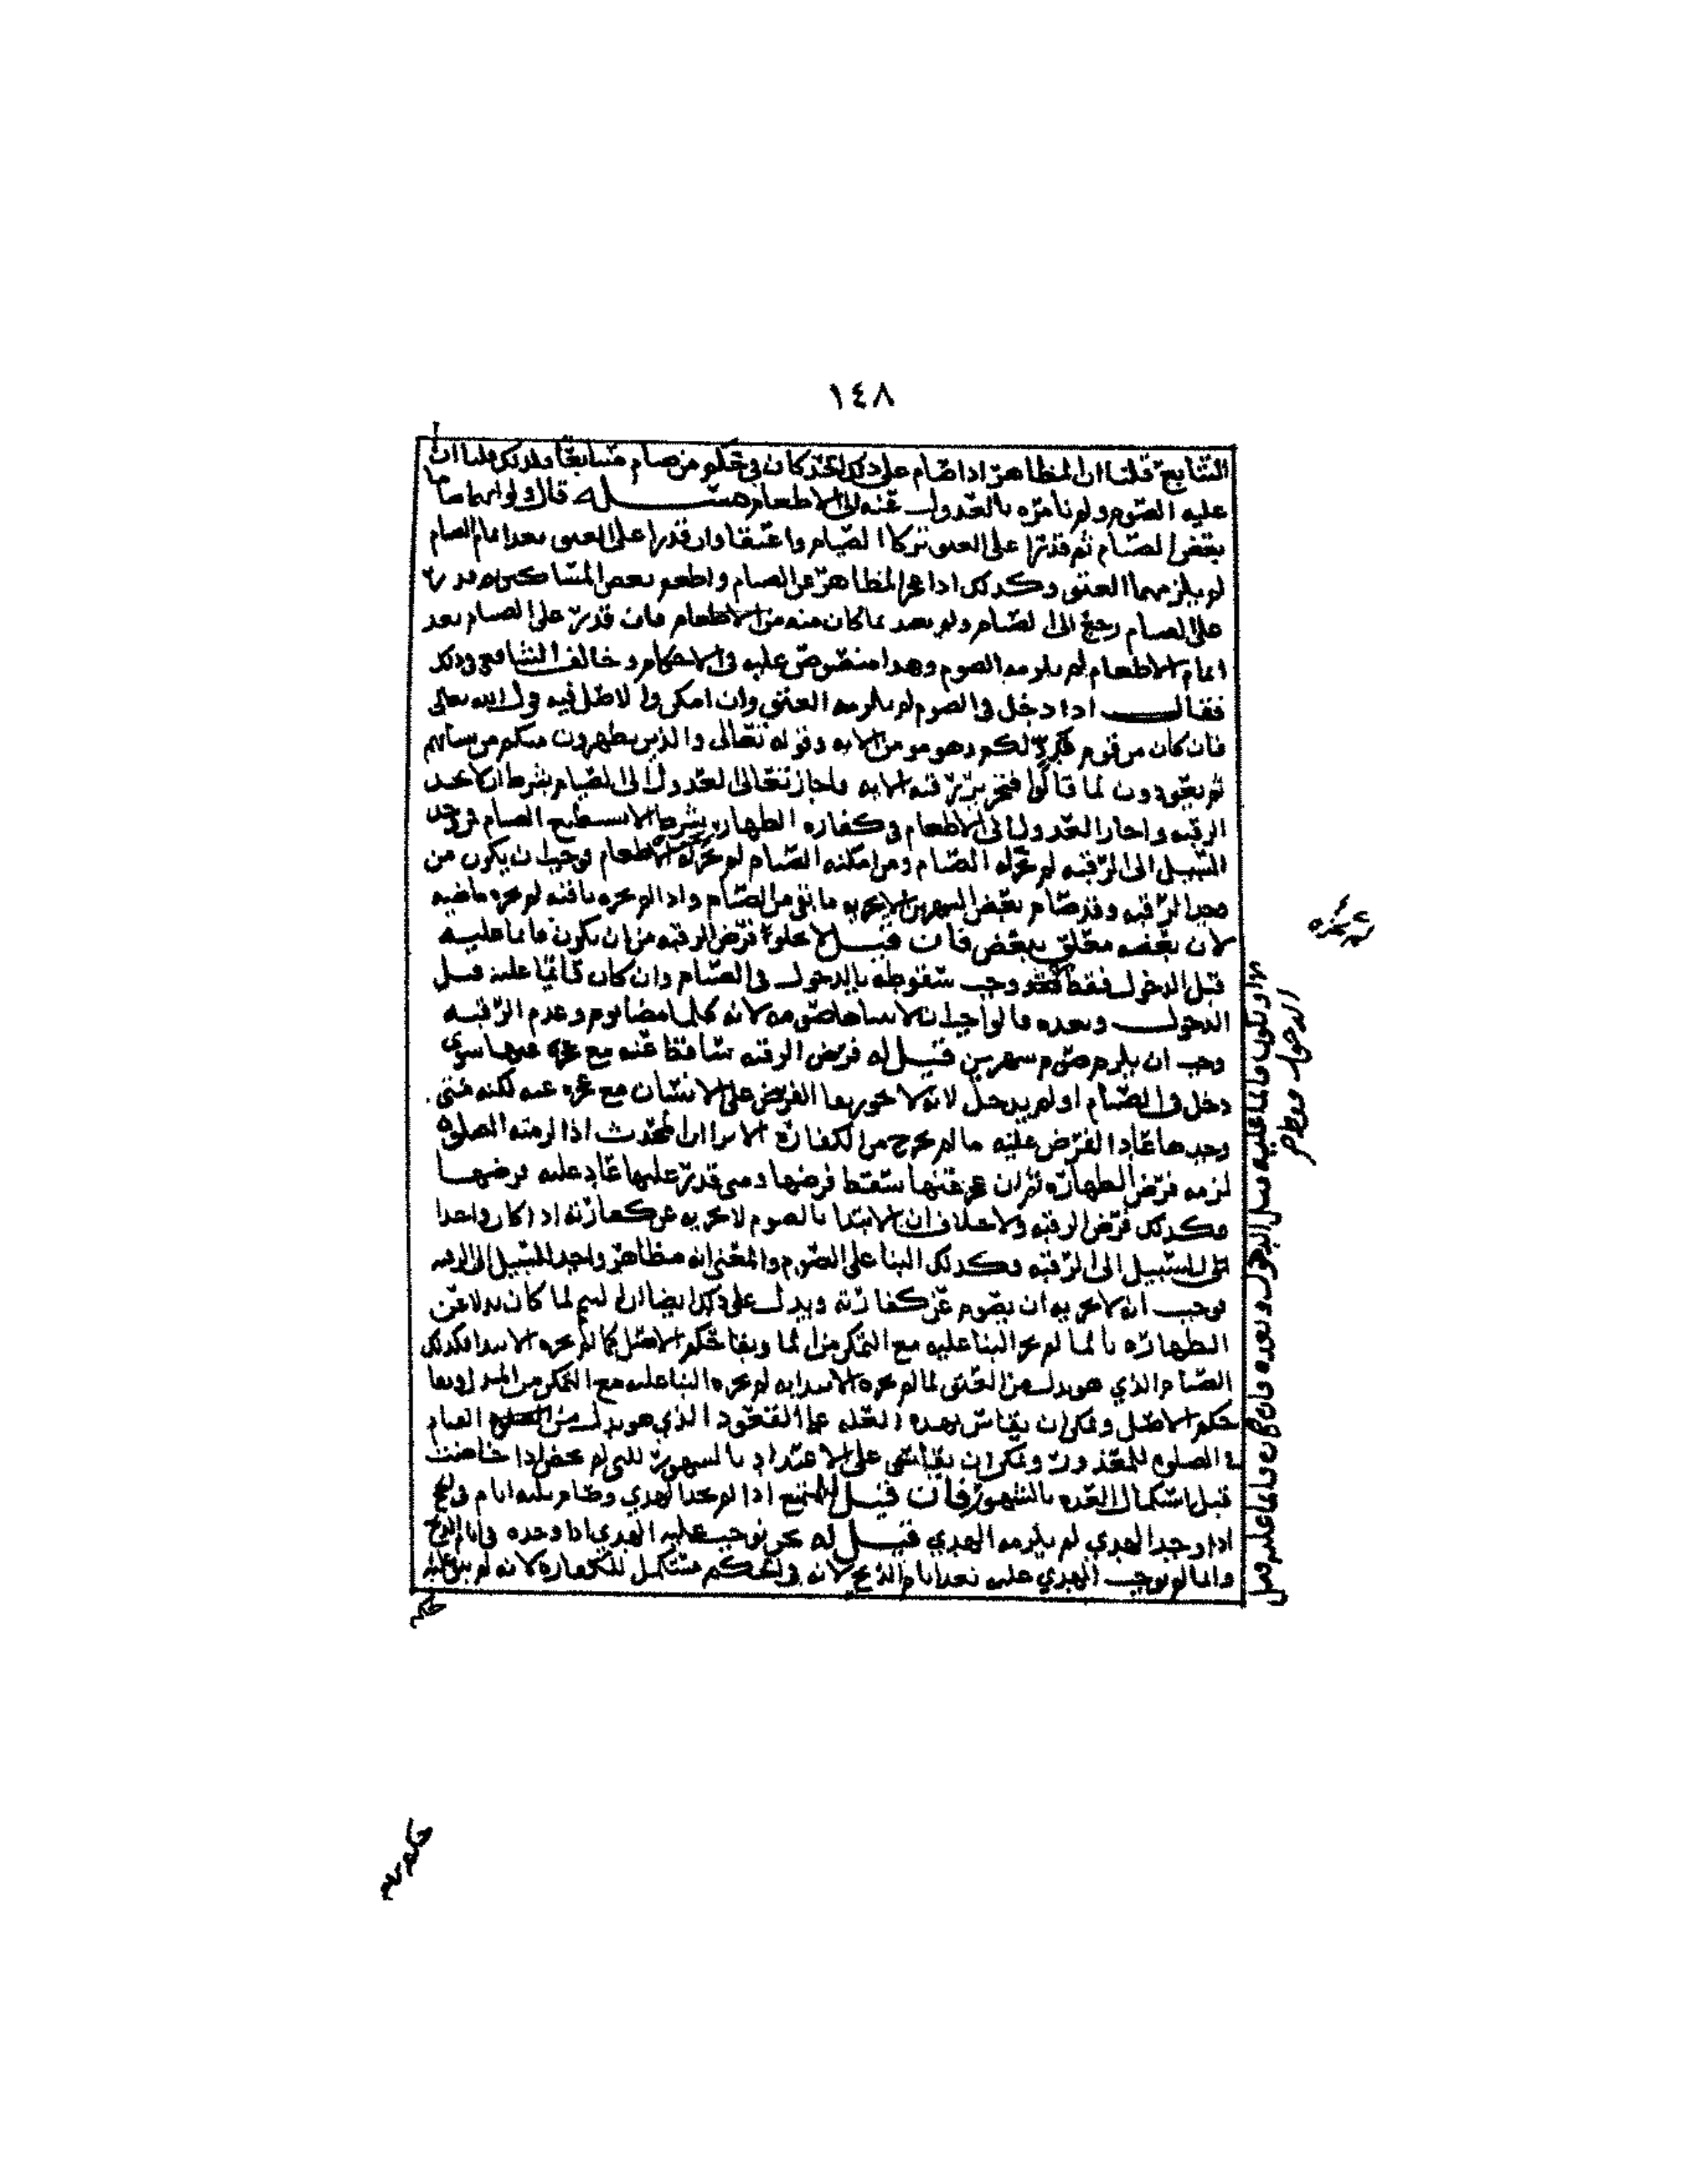 ١٤٨
التتابع قلنا ان المظاهر اذا صام على ذلك كان في حكم من صام متتابعا ولذلك قلنا ان
عليه الصوم ولم نامره بالعدول عنه الى الاطعام مسئلة قال ولو انهما صاما
بعض الصيام ثم قدرا على العتق تركا الصيام واعتقا وان قدرا على العتق بعد اتمام الصيام
لم يلزمهما العتق وكذلك اذا عجز المظاهر عن الصيام واطعم بعض المساكين ثم قدر
على الصيام رجع الى الصيام ولم يعتد بما كان منه من الاطعام فان قدر على الصيام بعد
اتمام الاطعام لم يلزمه الصوم وهذا منصوص عليه في الاحكام وخالف الشافعي في ذلك
فقال اذا دخل في الصوم لم يلزمه العتق وان امكن والاصل فيه قول الله تعالى
فان كان من قوم عدو لكم وهو مومن الايه وقوله تعالى والذين يظهرون منكم من نسائهم
ثم يعودون لما قالوا فتحرير رقبه الايه فاجاز تعالى العدول الى الصيام بشرط ان لا يجد
الرقبه واجاز العدول الى الاطعام في كفاره الظهار بشرط الا يستطيع الصيام فمن وجد
السبيل الى الرقبه لم يجزه الصيام ومن امكنه الصيام لم يجزه الاطعام فوجب ان يكون من
وجد الرقبه وقد صام بعض الشهرين لا يجزيه ما بقي من الصيام واذا لم يجزه باقيه لم يجزه ماضيه
لان بعضه معلق ببعض فان قيل لا يخلوا فرض الرقبه من ان يكون قائما عليه
قبل الدخول فقط فقد وجب سقوطه بالدخول في الصيام وان كان قائما عليه قبل
الدخول وبعده فالواجب ان صومه لانه كلما مضا يوم وعدم الرقبه
وجب ان يلزم صوم شهرين قيل له فرض الرقبه ساقط عنه مع عجزه عنها سوى
دخل في الصيام او لم يدخل لانه لا يجوز بقا الفرض على الانسان مع عجزه عنه لكنه متى
وجدها عاد الفرض عليه ما لم يخرج من الكفاره الا ترا ان المحدث اذا لزمته الصلوه
لزمه فرض الطهاره ثم ان عجز عنها سقط فرضها ومتى قدر عليها عاد عليه فرضها
وكذلك فرض الرقبه ولا خلاف ان الابتدا بالصوم لا يجزيه عن كفارته اذا كان واجدا
السبيل الى الرقبه وكذلك البنا على الصوم والمعنى انه مظاهر واجد للسبيل الى الرقبه
فوجب انه لا يجزيه ان يصوم عن كفارته ويدل على ذلك ايضا ان التيمم لما كان بدلا عن
الطهاره بالما لم يجز البنا عليه مع التمكن من الما وبقا حكم الاصل كما لم يجزه الابتدا فكذلك
الصيام الذي هو بدل من العتق لما لم يجزه الابتدا به لم يجزه البنا عليه مع التمكن من المبدل وبقا
حكم الاصل ويمكن ان يقاس بهذه العله على القعود الذي هو بدل من القيام
في الصلوه للمعذور ويمكن ان يقاس على الاعتداد بالشهور للتي لم تحض اذا حاضت
قبل استكمال العده بالشهور فان قيل المتمتع اذا لم يجد الهدي وصام ثلثه ايام في الحج
اذا وجد الهدي لم يلزمه الهدي قيل له نحن نوجب عليه الهدي اذا وجده في ايام الذبح
وانما لم نوجب الهدي عليه بعد ايام الذبح لانه في الحكم مستكمل للكفاره لانه لم يبق عليه
حكم
او يكون قائما عليه قبل الدخول وبعده فان كان قائما عليه قبل
الدخول فقط